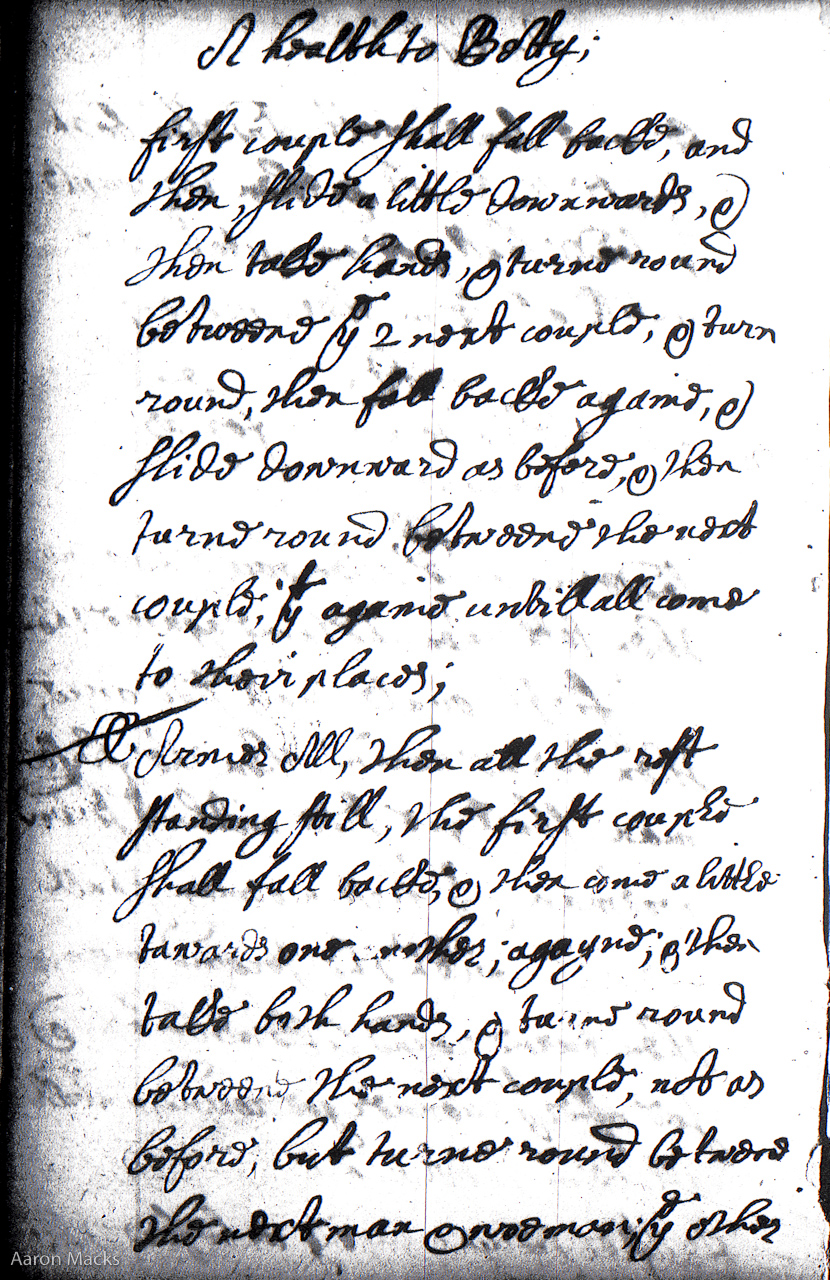 A health to Betty;
first couple shall fall backe, and
then, slide a little downwards, &
then take hands, & turne round
betweene ye 2 next couple; & turn
round, then fall backe againe, &
slide downward as before, & then
turne round betweene the next
couple; yt againe untill all come
to their places;
Armes All, then all the rest
standing still, the first couple
shall fall backe, & then come a little
tawards one nother; agayne; & then
take both hands, & turne round
betweene the next couple, not as
before, but turne round betweene
the next man & woeman; ye other
Aaron Macks